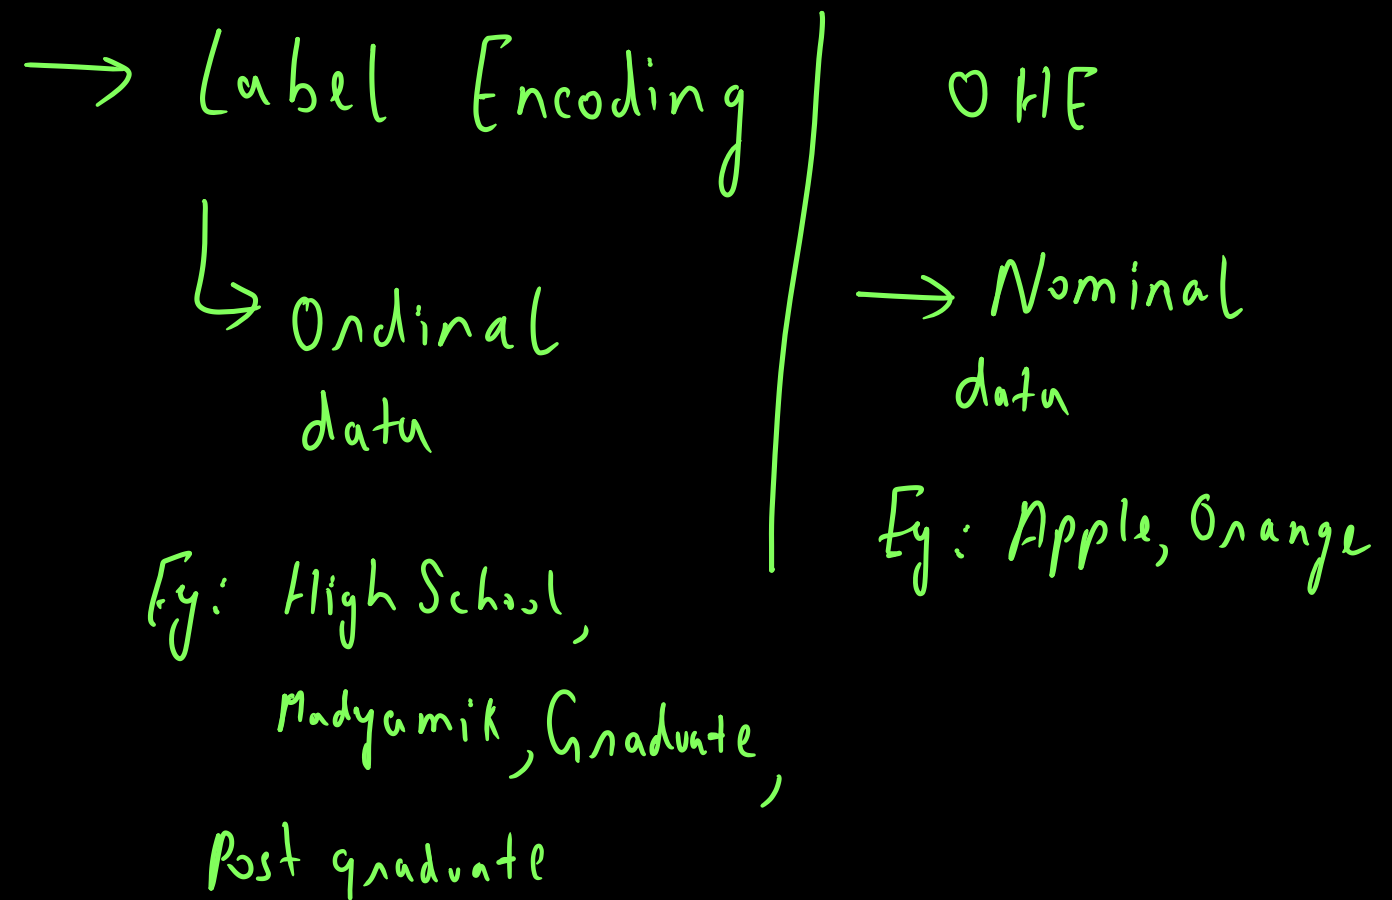 → Label Encoding
↳ Ordinal
data
Eg: High School,
Madyamik, Graduate,
Post graduate
OHE
→ Nominal
data
Eg: Apple, Orange